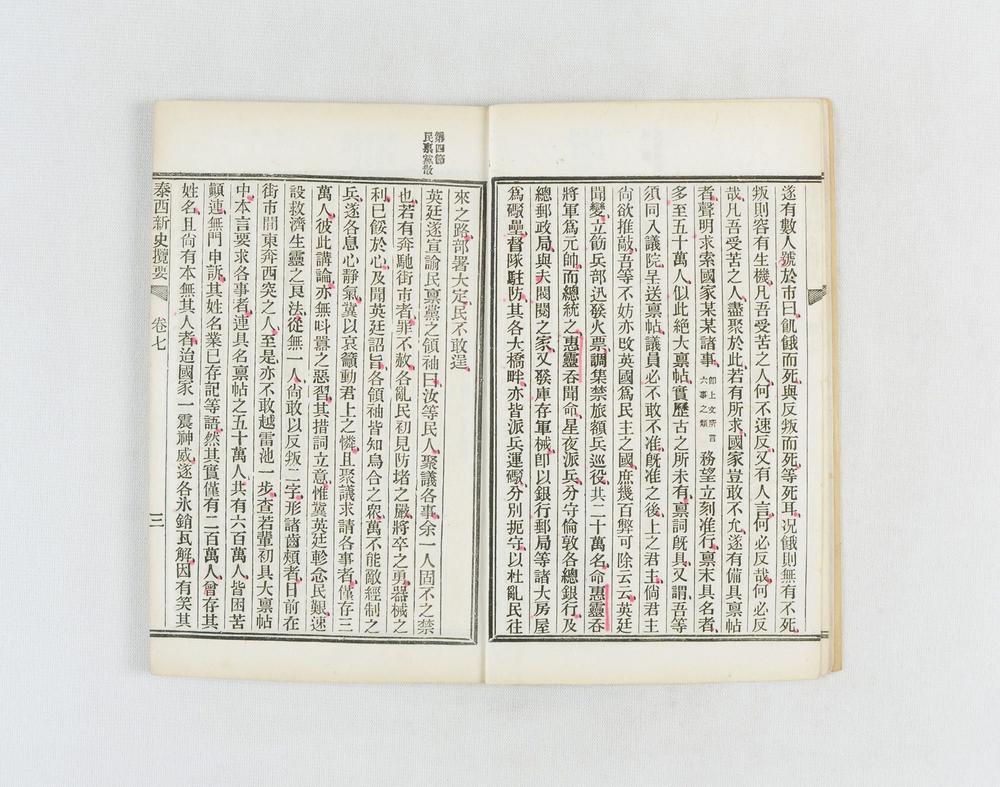 遂有數人號於市曰飢餓而死與反叛而死等死耳况餓則無有不死
叛則容有生機凡吾受苦之人何不速反又有人言何必反哉何必反
哉凡吾受苦之人盡聚於此若有所求國家豈敢不允遂有備具稟帖
者聲明求索國家某某諸事 卽上文所言六事之類 務望立刻准行稟末具名者
多至五十萬人似此絕大稟帖實歷古之所未有稟詞旣具又謂吾等
須同入議院呈送稟帖議員必不敢不准旣准之後上之君主倘君主
尙欲推敲吾等不妨亦改英國爲民主之國庶幾百弊可除云云英廷
聞變立飭兵部迅發火票調集禁旅額兵巡役共二十萬名命惠靈吞
將軍爲元帥而總統之惠靈吞聞命星夜派兵分守倫敦各總銀行及
總郵政局與夫閥閱之家又發庫存軍械卽以銀行郵局等諸大房屋
爲礮壘督隊駐防其各大橋畔亦皆派兵運礮分別扼守以杜亂民往
第四節
民稟黨散
來之路部署大定民不敢逞
英廷遂宣諭民稟黨之領袖曰汝等民人聚議各事余一人固不之禁
也若有奔馳街市者罪不赦各亂民初見防堵之嚴將卒之勇器械之
利已餒於心及聞英廷詔旨各領袖皆知烏合之衆萬不能敵經制之
兵遂各息心靜氣冀以哀籲動君上之憐且聚議求請各事者僅存三
萬人彼此講論亦無叫囂之惡習其措詞立意惟冀英廷軫念民艱速
設救濟生靈之良法從無一人尙敢以反叛二字形諸齒頰者日前在
街市間東奔西突之人至是亦不敢越雷池一步查若輩初具大稟帖
中本言要求各事者連具名稟帖之五十萬人共有六百萬人皆困苦
顚連無門申訴其姓名業已存記等語然其實僅有二百萬人曾存其
姓名且尙有本無其人者治國家一震神威遂各氷銷瓦解因有笑其
泰西新史攬要 卷七 三